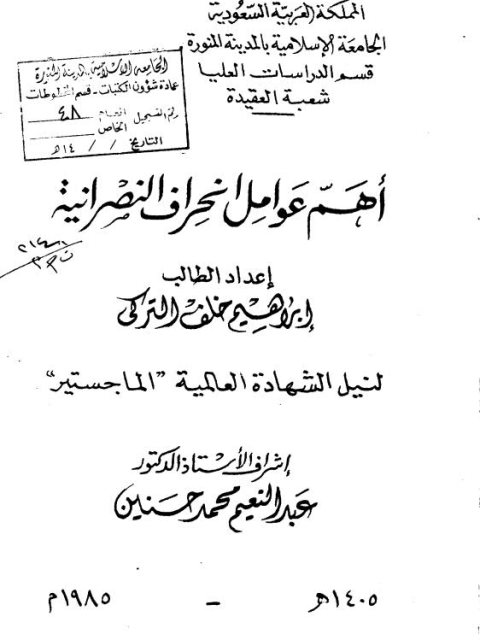 المملكة العربية السعودية
الجامعة الإسلامية بالمدينة المنورة
قسم الدراسات العليا
شعبة العقيدة
الجامعة الإسلامية بالمدينة المنورة
عمادة شؤون المكتبات - قسم المخطوطات
رقم التسجيل العام ٤٨
الخاص
التاريخ / / ١٤هـ
أهم عوامل انحراف النصرانية
إعداد الطالب
إبراهيم خلف التركي
لنيل الشهادة العالمية "الماجستير"
إشراف الأستاذ الدكتور
عبد النعيم محمد حسنين
١٤٠٥هـ - ١٩٨٥م